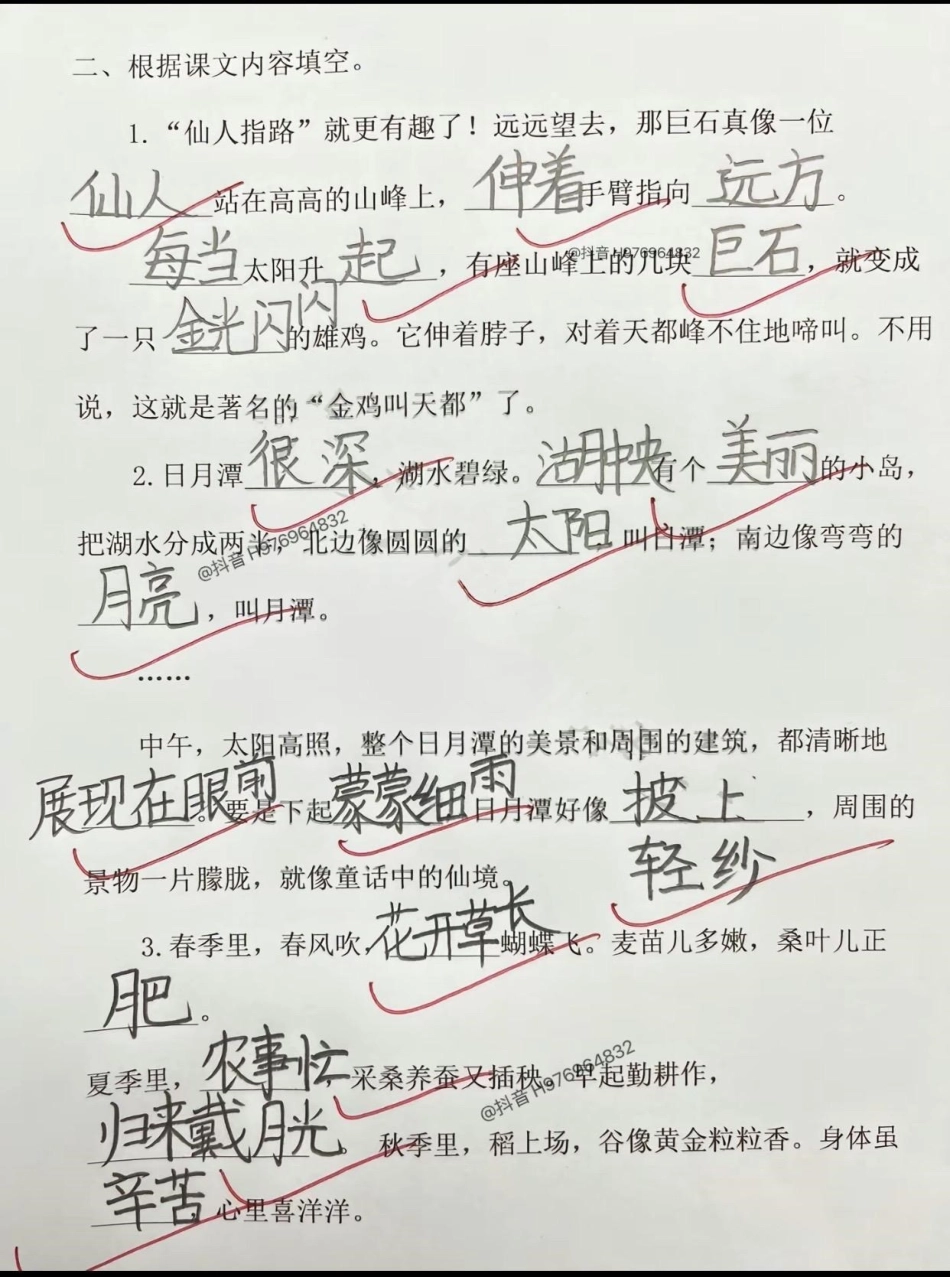 二、根据课文内容填空。
1. “仙人指路”就更有趣了！远远望去，那巨石真像一位
仙人站在高高的山峰上，伸着手臂指向远方。
@抖音 H976964832
每当太阳升起，有座山峰上的几块巨石，就变成
了一只金光闪闪的雄鸡。它伸着脖子，对着天都峰不住地啼叫。不用
说，这就是著名的“金鸡叫天都”了。
2. 日月潭很深，湖水碧绿。湖中央有个美丽的小岛，
把湖水分成两半，北边像圆圆的太阳，叫日潭；南边像弯弯的
@抖音 H976964832
月亮，叫月潭。
……
中午，太阳高照，整个日月潭的美景和周围的建筑，都清晰地
展现在眼前。要是下起蒙蒙细雨日月潭好像披上，周围的
轻纱
景物一片朦胧，就像童话中的仙境。
3. 春季里，春风吹，花开草长蝴蝶飞。麦苗儿多嫩，桑叶儿正
肥。
夏季里，农事忙，采桑养蚕又插秧。早起勤耕作，
@抖音 H976964832
归来戴月光。秋季里，稻上场，谷像黄金粒粒香。身体虽
辛苦，心里喜洋洋。